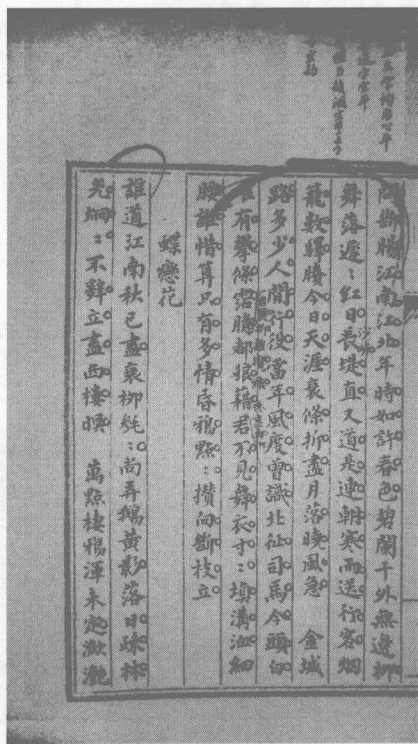 問斷腸江南江北年時如許春色碧闌干外無邊柳
舞落遲：紅日長堤直又道是連朝寒雨送行客烟
籠數驛賸今日天涯衰條折盡月落曉風急　金城
路多少人間行役當年風度曾識北征司馬今頭白
唯有攀條霑臆都狼藉君不見舞衣寸：填溝洫細
腰誰惜算只有多情昏鴉點：攢向斷枝立
蝶戀花
誰道江南秋已盡衰柳毿：尚弄鵝黃影落日疎林
光炯：不辭立盡西樓暝　萬點棲鴉渾未定瀲灩